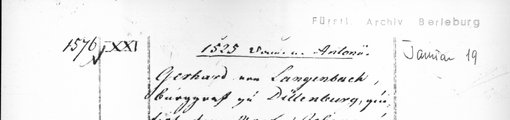 Fürstl. Archiv Berleburg
1576 XXI 1525 Antonii. Januar 19
Gerhard von Langenbach,
burggraf zu Dillenburg,